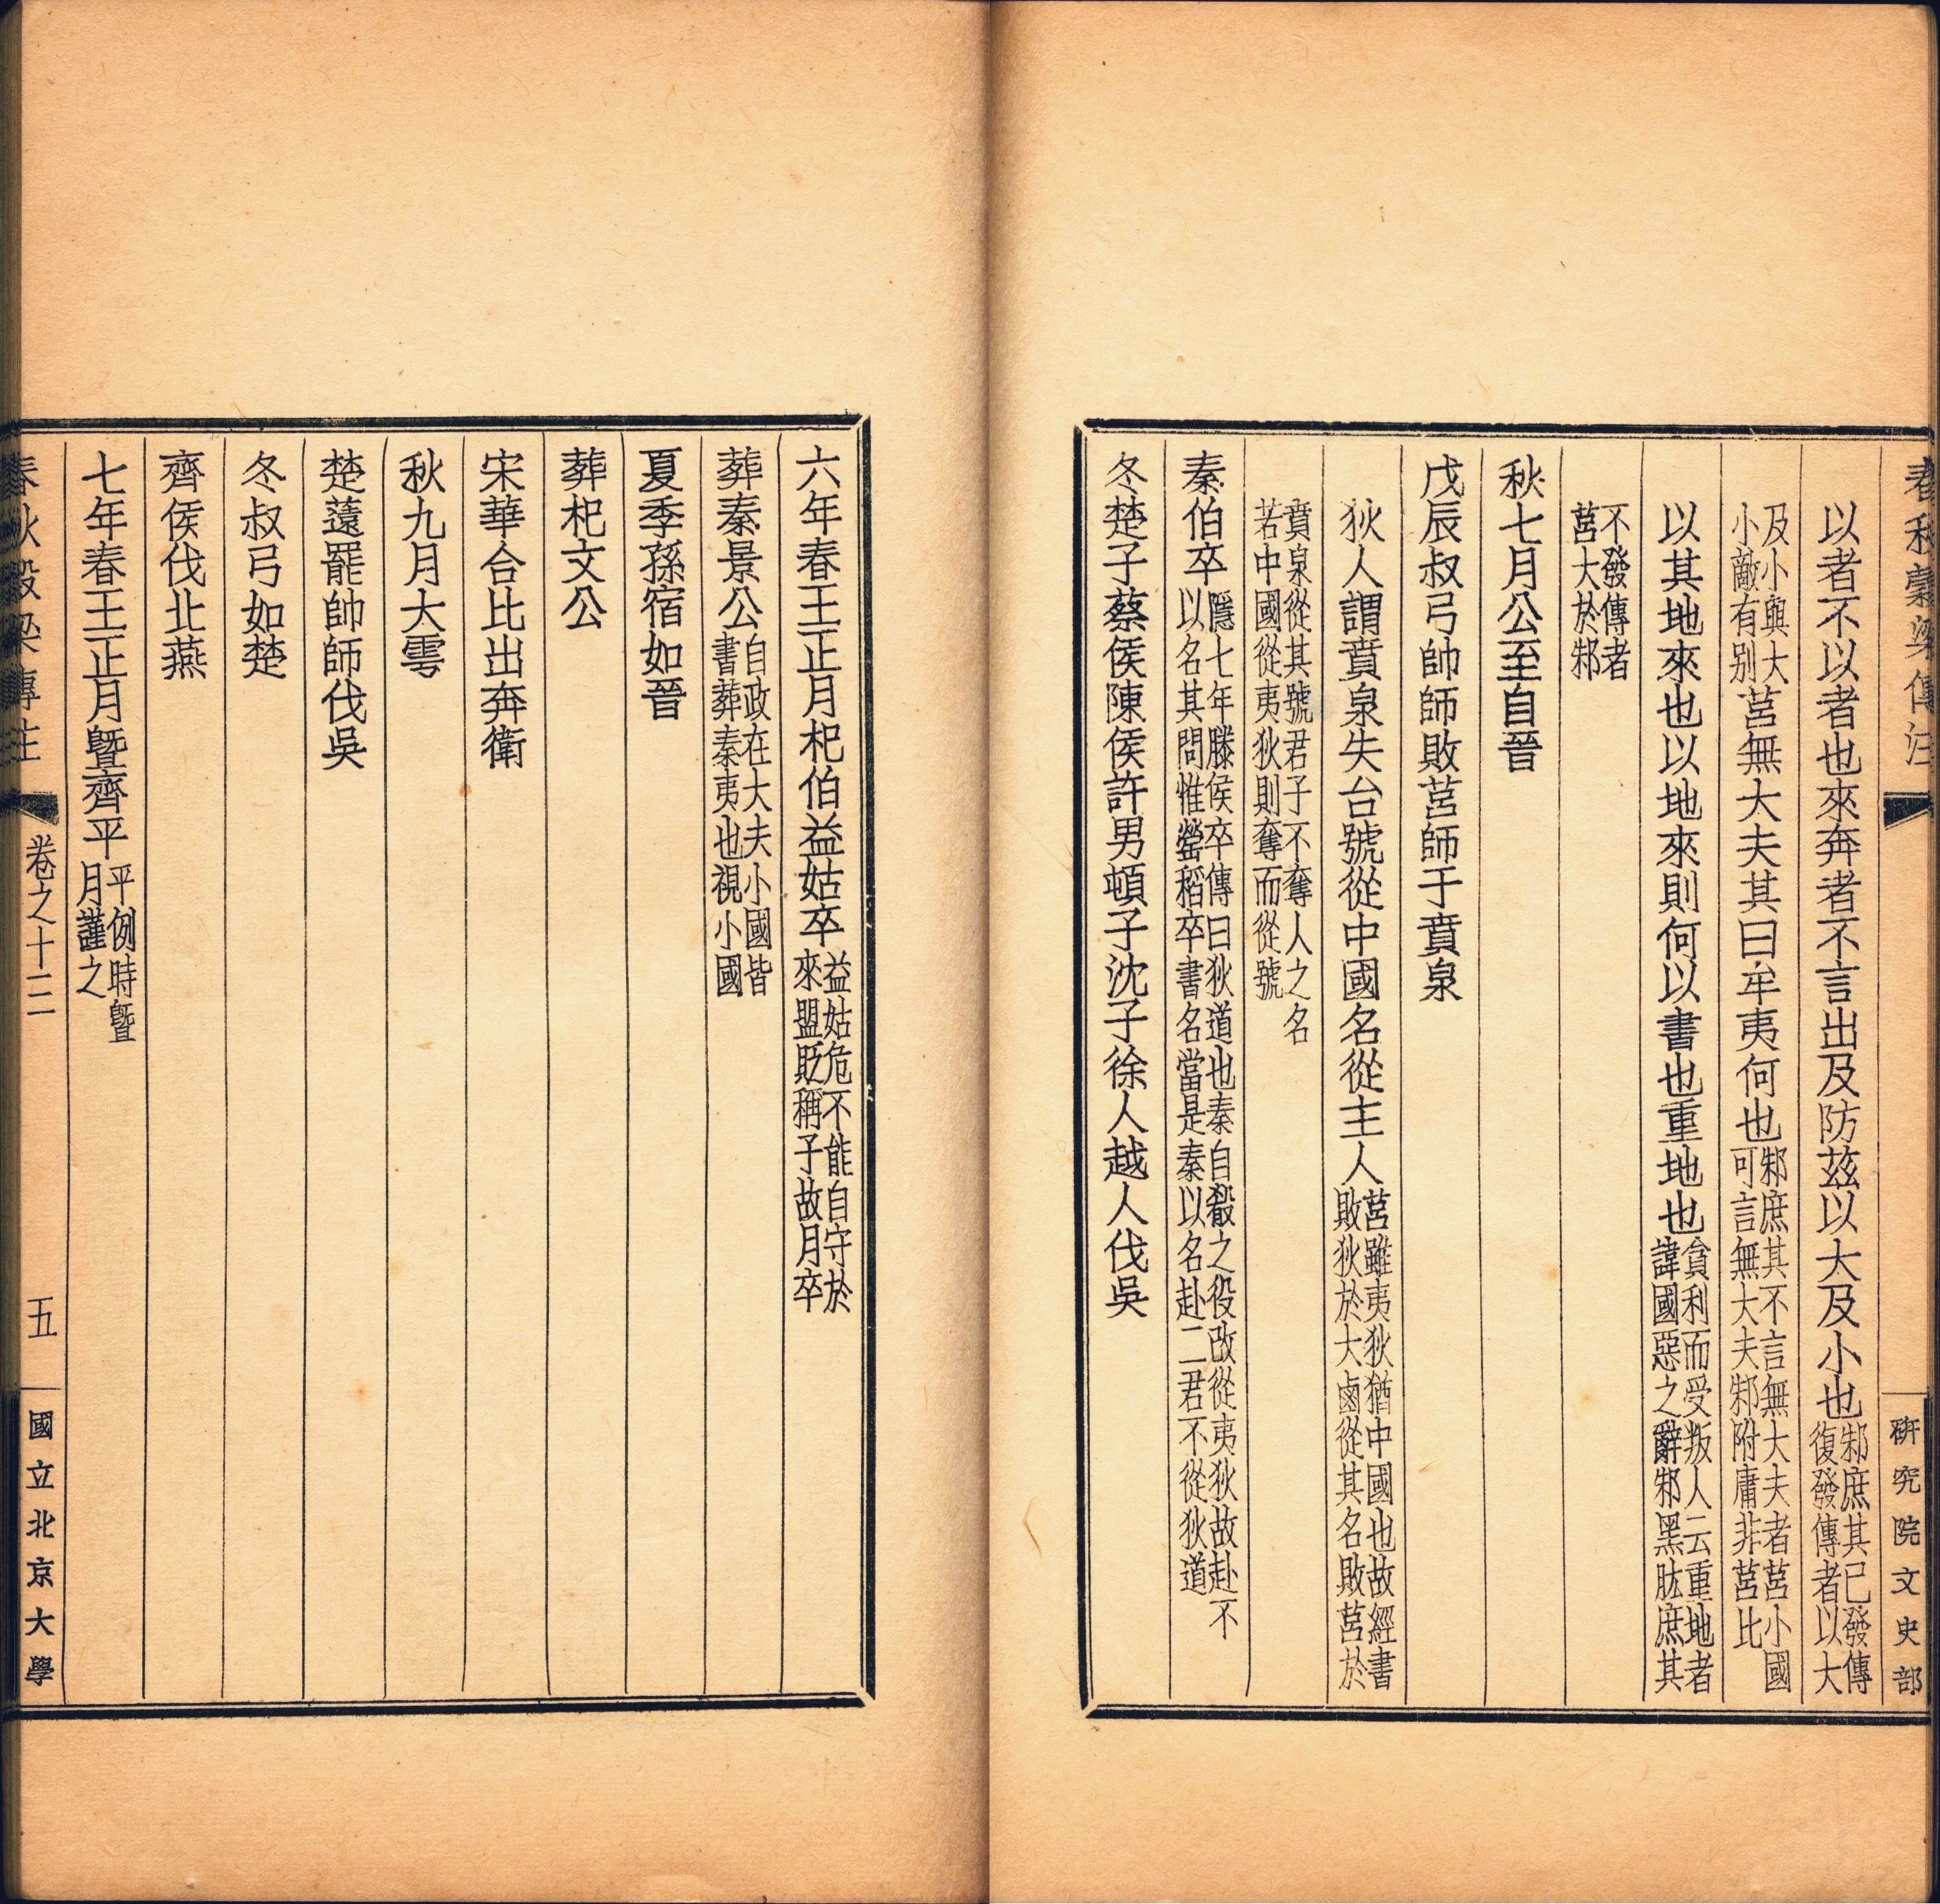 春秋穀梁傳注
研究院文史部
以者不以者也來奔者不言出及防茲以大及小也邾庶其已發傳
復發傳者以大
及小與大
小敵有別莒無大夫其曰牟夷何也邾庶其不言無大夫者莒小國
可言無大夫邾附庸非莒比
以其地來也以地來則何以書也重地也貪利而受叛人云重地者
諱國惡之辭邾黑肱庶其
不發傳者
莒大於邾
秋七月公至自晉
戊辰叔弓帥師敗莒師于賁泉
狄人謂賁泉失台號從中國名從主人莒雖夷狄猶中國也故經書
敗狄於大鹵從其名敗莒於
賁泉從其號君子不奪人之名
若中國從夷狄則奪而從號
秦伯卒隱七年滕侯卒傳曰狄道也秦自殽之役改從夷狄故赴不
以名其問惟罃稻卒書名當是秦以名赴二君不從狄道
冬楚子蔡侯陳侯許男頓子沈子徐人越人伐吳
六年春王正月杞伯益姑卒益姑危不能自守於
來盟貶稱子故月卒
葬秦景公自政在大夫小國皆
書葬秦夷也視小國
夏季孫宿如晉
葬杞文公
宋華合比出奔衛
秋九月大雩
楚薳罷帥師伐吳
冬叔弓如楚
齊侯伐北燕
七年春王正月暨齊平平例時暨
月謹之
春秋穀梁傳注
卷之十二
五
國立北京大學